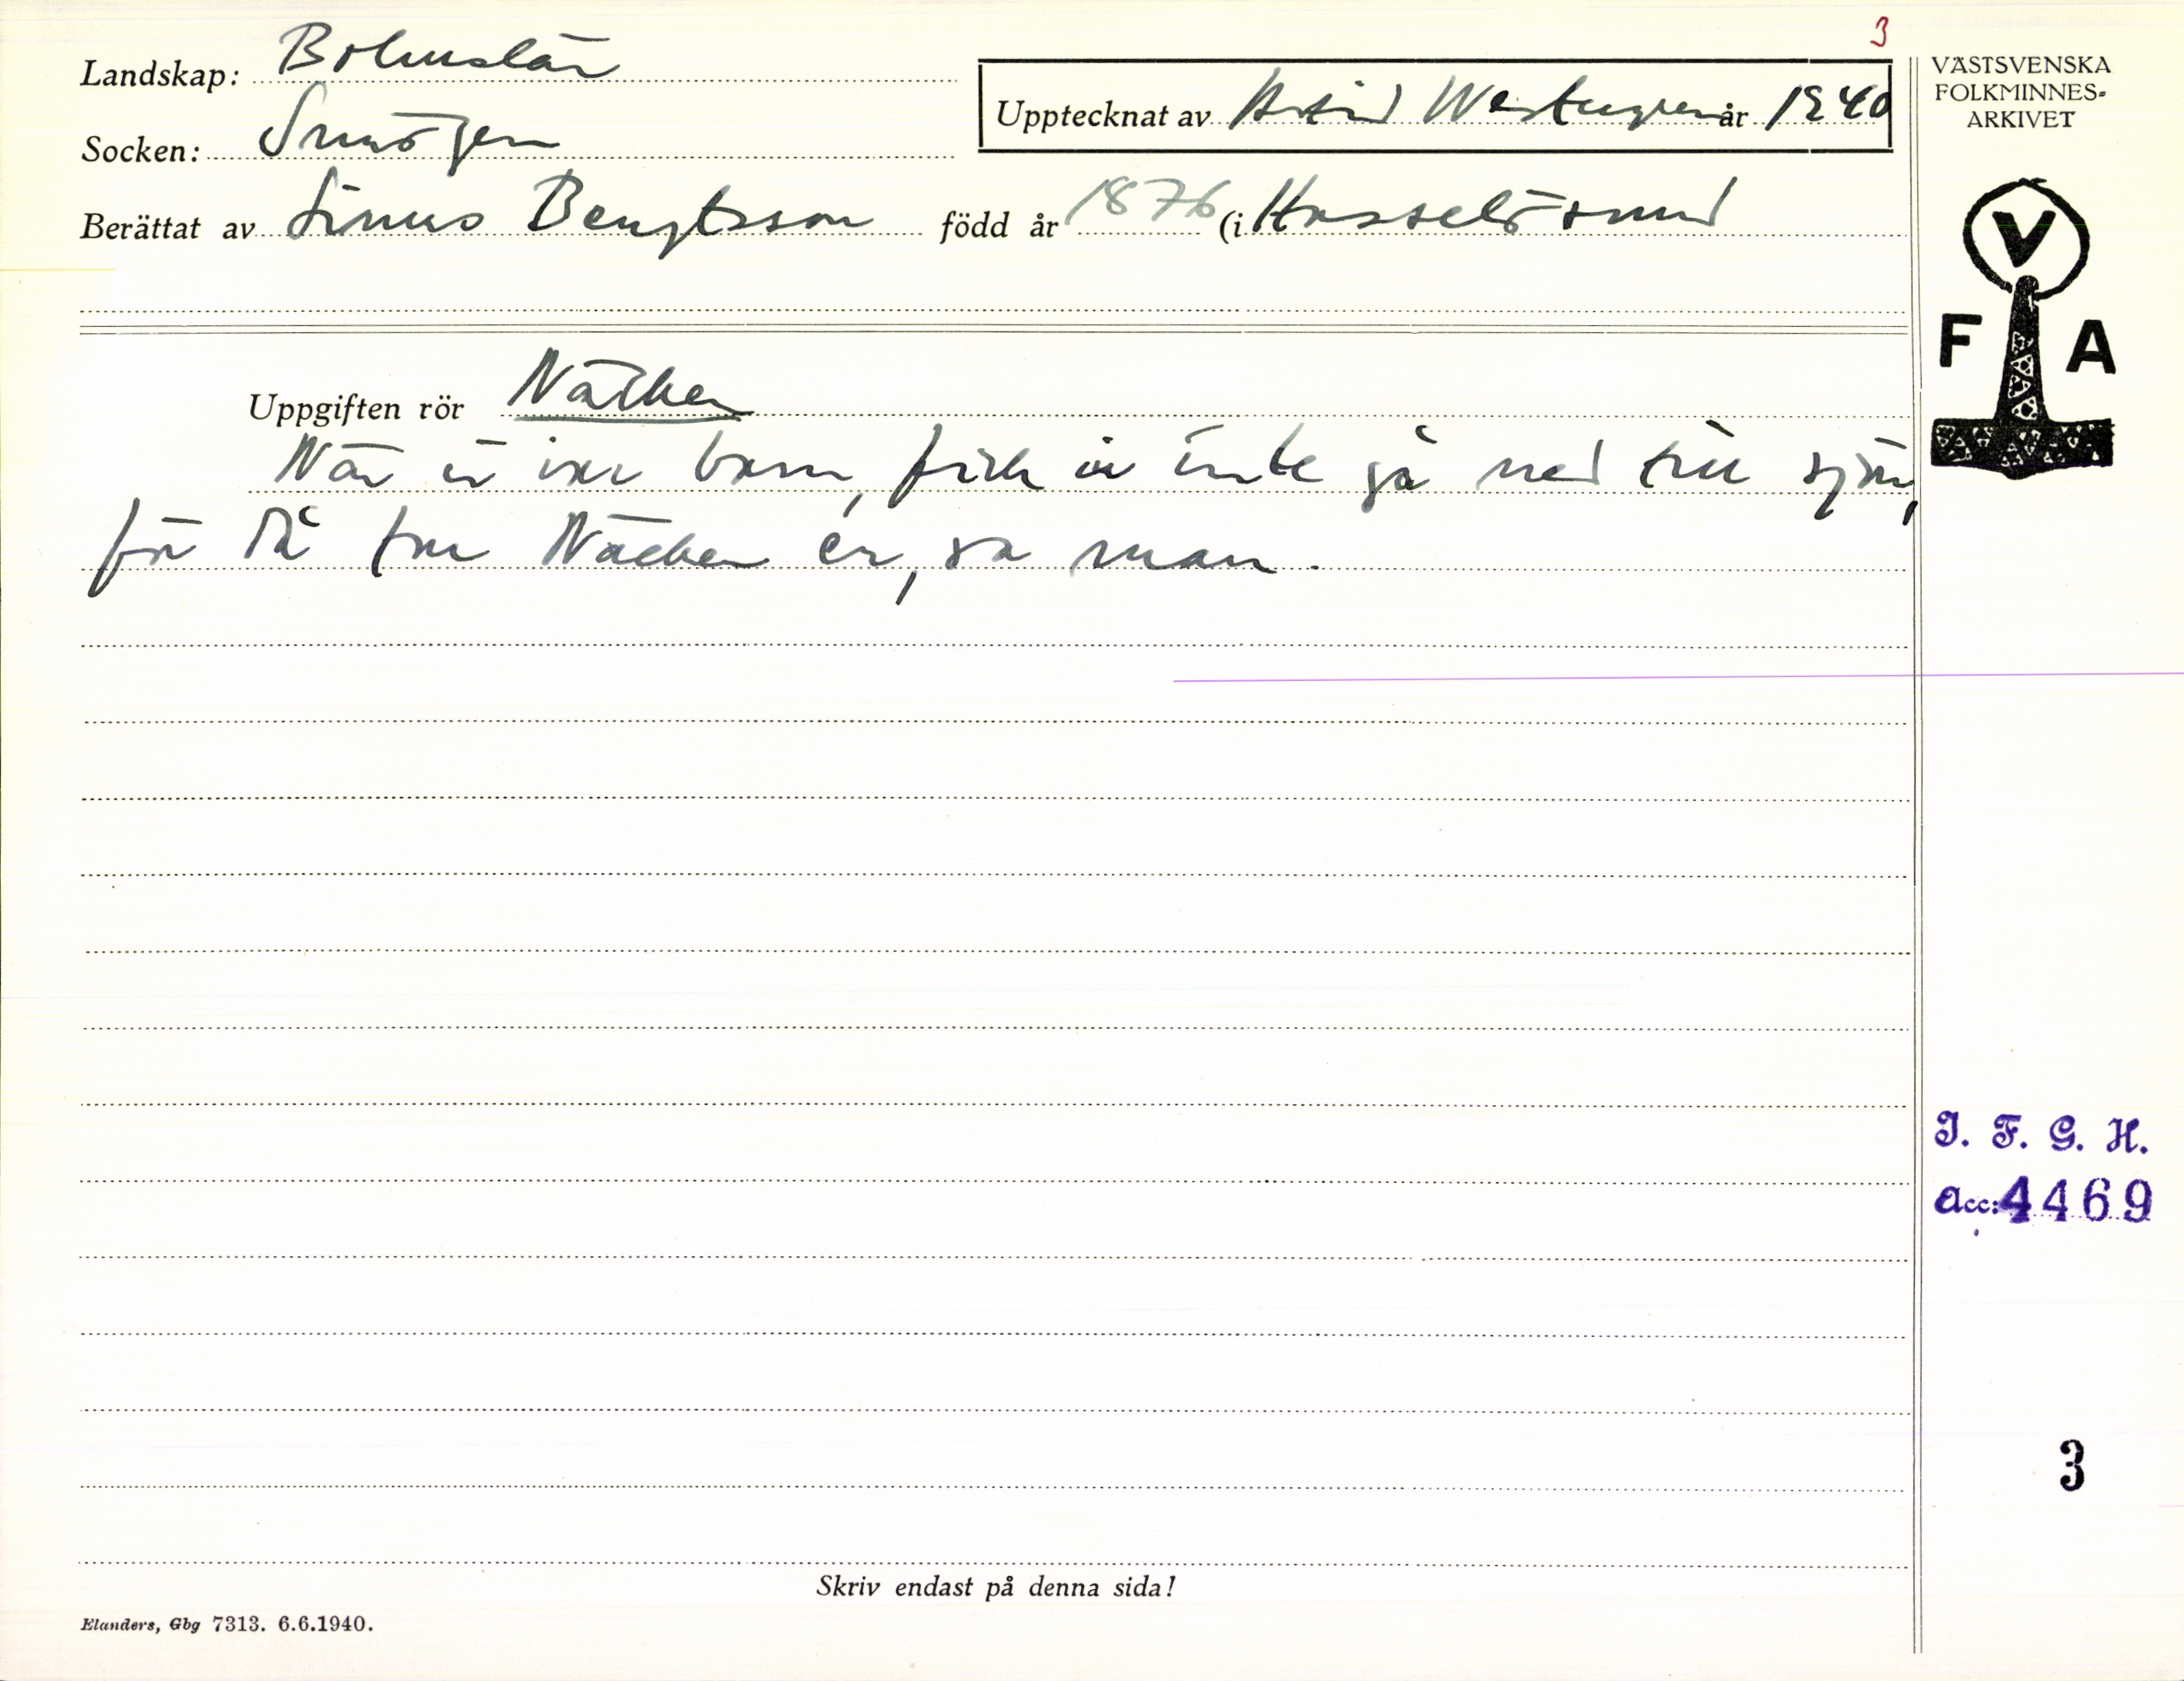 3
Landskap: Bohuslän
Upptecknat av Astrid Westergren år 1940
Socken: Smögen
Berättat av Linus Bengtsson född år 1876 (i Hasselösund
Uppgiften rör Näcken
När vi var barn, fick vi inte gå ned till sjön,
för då tar Näcken er, sa man.
Skriv endast på denna sida!
Elanders, Gbg 7313. 6.6.1940.
VÄSTSVENSKA
FOLKMINNES-
ARKIVET
V
F A
I. F. G. H.
acc: 4469
3